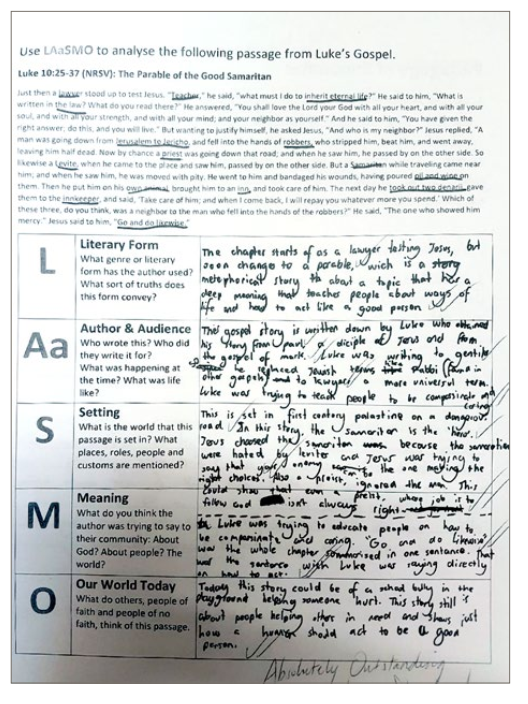 Use LAaSMO to analyse the following passage from Luke's Gospel.
Luke 10:25-37 (NRSV): The Parable of the Good Samaritan
Just then a lawyer stood up to test Jesus. "Teacher," he said, "what must I do to inherit eternal life?" He said to him, "What is
written in the law? What do you read there?" He answered, "You shall love the Lord your God with all your heart, and with all your
soul, and with all your strength, and with all your mind; and your neighbor as yourself." And he said to him, "You have given the
right answer; do this, and you will live." But wanting to justify himself, he asked Jesus, "And who is my neighbor?" Jesus replied, "A
man was going down from Jerusalem to Jericho, and fell into the hands of robbers, who stripped him, beat him, and went away,
leaving him half dead. Now by chance a priest was going down that road; and when he saw him, he passed by on the other side. So
likewise a Levite, when he came to the place and saw him, passed by on the other side. But a Samaritan while traveling came near
him; and when he saw him, he was moved with pity. He went to him and bandaged his wounds, having poured oil and wine on
them. Then he put him on his own animal, brought him to an inn, and took care of him. The next day he took out two denarii, gave
them to the innkeeper, and said, 'Take care of him; and when I come back, I will repay you whatever more you spend.' Which of
these three, do you think, was a neighbor to the man who fell into the hands of the robbers?" He said, "The one who showed him
mercy." Jesus said to him, "Go and do likewise."
L
Literary Form
What genre or literary
form has the author used?
What sort of truths does
this form convey?
The chapter starts of as a lawyer testing Jesus, but
soon changes to a parable, wich is a story
metephorical story about a topic that has a
deep meaning that teaches people about ways of
life and how to act like a good person
Aa
Author & Audience
Who wrote this? Who did
they write it for?
What was happening at
the time? What was life
like?
This gospel story is written down by Luke who obtained
his story from paul, a diciple of Jesus and from
the gospel of mark. Luke was writing to gentile
he replaced Jewish terms like rabbi (found in
other gospels) to lawyer a more universal term.
Luke was trying to teach people to be compasionate and
caring.
S
Setting
What is the world that this
passage is set in? What
places, roles, people and
customs are mentioned?
This is set in first century palastine on a dangerous
road. In this story, the samaritan is the 'hero'.
Jesus choosed the samaritan because the samaritan
were hated by leviter and Jesus was trying to
say that your enemy the one making the
right choices. Also a preist, ignored the man. This
could show that even a preist, whose job is to
follow god isn't always right
M
Meaning
What do you think the
author was trying to say to
their community: About
God? About people? The
world?
Luke was trying to educate people on how to
be compasinate and caring. 'Go and do likewise'
was the whole chapter summorised in one sentance. That
was the sentance wich Luke was saying directly
on how to act.
O
Our World Today
What do others, people of
faith and people of no
faith, think of this passage.
Today this story could be of a school bully in the
playground helping someone hurt. This story still is
about people helping other in need and shows just
how a human should act to be a good
person.
Absolutely Outstanding